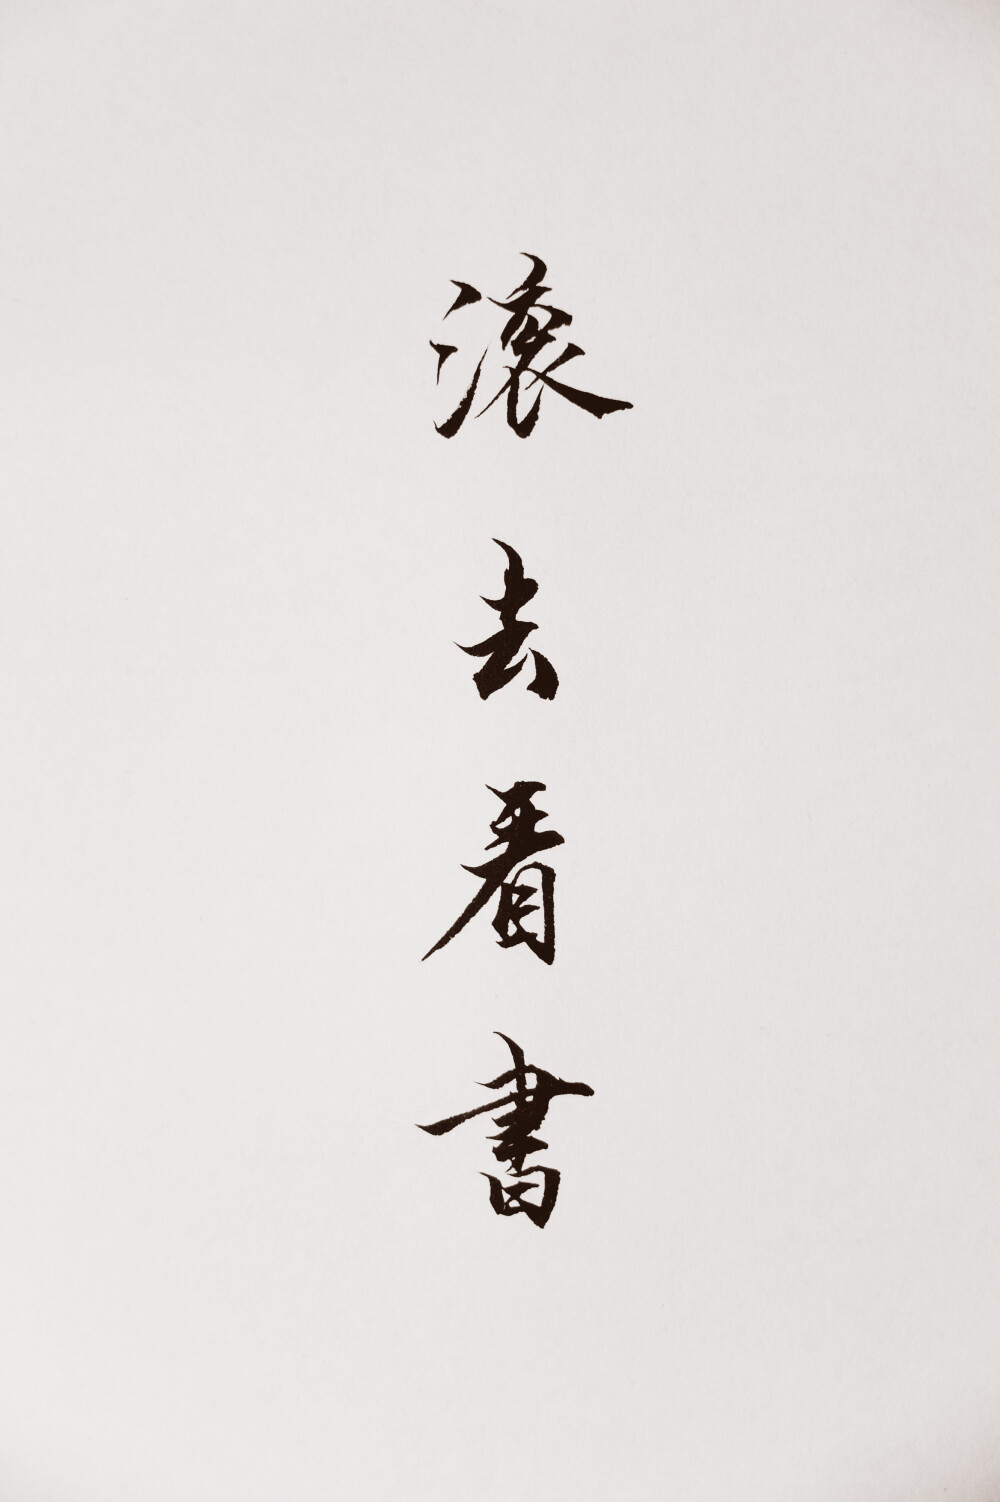 滚去看書